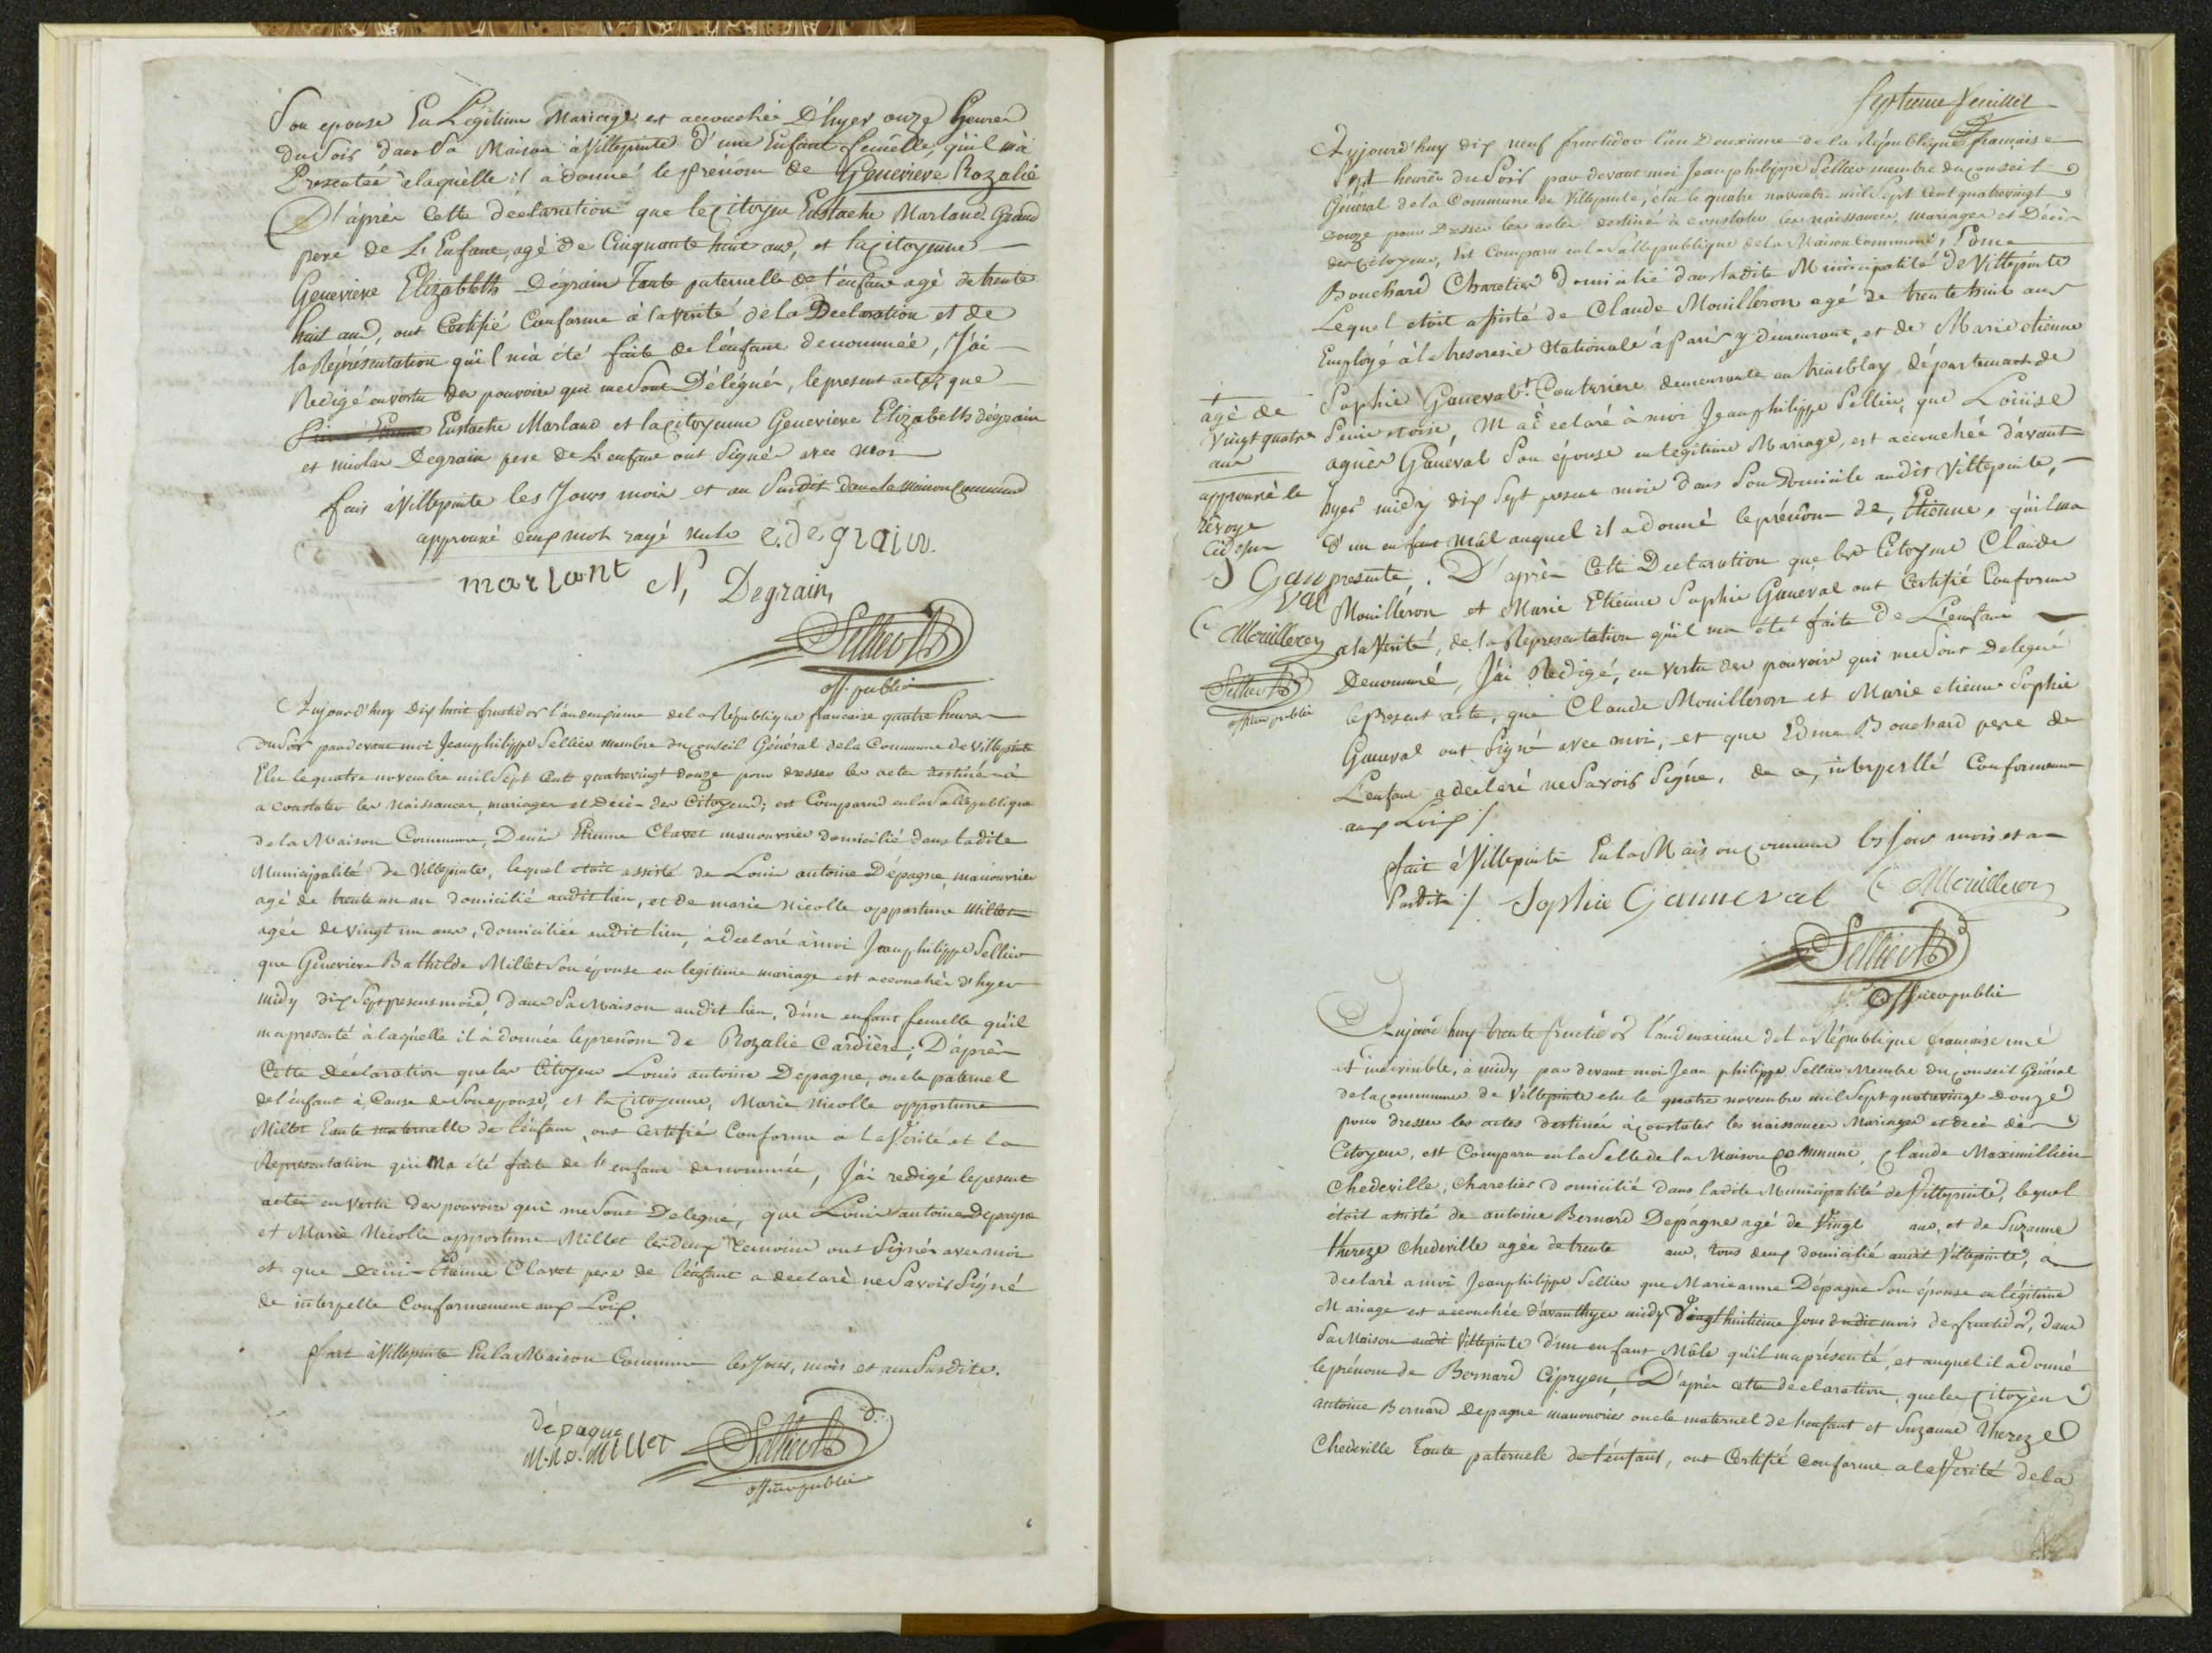 Son epouse En Légitime Mariage est accouchée D'hyer onze heures
du Soir dans Sa Maison à Villepinte d'une Enfant femelle, qu'il m'a
Presentée alaquelle il a donné le prénom de Genevieve Rozalie
D'après Cette déclaration que le Citoyen Eustache Marland Grand
pere de L'Enfant, agé de Cinquante huit ans, et la Citoyenne
Genevieve Elizabeth Dégrain Tante paternelle de l'enfant agé de trente
huit ans, ont Certifié Conforme à la verité de la Declaration et de
la Réprésentation qu'il m'a été faite de l'enfant denommée, J'ai
Redigé en vertu des pouvoirs qui me Sont Délégués, le present acte, que
Eustache Marland et la citoyenne Genevieve Elizabeth dégrain
et nicolas Degrain pere de L'enfant ont Signés avec moi
fait à Villepinte les Jours mois et an Susdit dans la maison Commune
approuvé deux mots rayé nuls e. degrain.
marlant N, Degrain,
Sellier
off. public
Aujourd'huy Dix huit fructidor l'an deuxieme de la République francaise quatre heures
du Soir pardevant moi Jeanphilippe Sellier membre du Conseil Général de la Commune de Villepinte
Elu le quatre novembre mil Sept Cent quatrevingt douze pour dresser les actes destinés à
a constater les Naissances, mariages et Décès des Citoyens; est Comparu en la Salle publique
de la Maison Commune, Denis Etienne Clavet manouvrier domicilié dans ladite
Municipalité de Villepinte, lequel etoit assisté de Louis antoine Dépagne, manouvrier
agé de trente un an domicilié audit lieu, et de marie nicolle opportune Millet
agée de vingt un ans, domiciliée audit lieu, a declaré à moi Jeanphilippe Sellier
que Genevieve Bathilde Millet Son épouse en legitime mariage est accouchée d'hyer
midy dix Sept present mois, dans Sa Maison audit lieu, d'un enfant femelle qu'il
ma presenté à laquelle il à donnée le prenom de Rozalie Cardière; D'après
Cette déclaration que les Citoyens Louis antoine Depagne, oncle paternel
de l'enfant à Cause de Son epouse, et la Citoyenne, Marie Nicolle opportune
Millet Tante maternelle de l'enfant, ont Certifié Conforme à la Vérité et la
Representation qui Ma été faite de l'enfant denommée, J'ai redigé le present
acte en Vertu des pouvoirs qui me Sont Delegué, que Louis antoine Depagne
et Marie Nicolle opportune Millet les deux temoins ont Signés avec moi
et que Denis Etienne Clavet pere de l'enfant a declaré ne Savoir Signé
de interpelle Conformement aux Loix.
fait à Villepinte En la Maison Commune les Jour, mois et an Susdits.
dépagne
M. N. O. Millet Sellier
officier public
Septieme feuillet
Aujourd'huy dix neuf fructidor l'an Deuxieme de la République française
Sept heures du Soir par devant moi Jean philippe Sellier membre du Conseil
Général de la Commune de Villepinte, élu le quatre novembre mil Sept Cent quatrevingt
Douze pour Dresser les actes destiné à constater les naissances, mariages et Décès
des Citoyens, Est Comparu en la Salle publique de la Maison Commune, Edme
Bouchard Charetier domicilié dans ladite Municipalité de Villepinte
Lequel etoit assisté de Claude Mouilleron agé de trente huit ans
Employé à la tresorerie Nationale à Paris y demeurant, et de Marie etienne
Sophie Ganeval Couturiere demeurante au tremblay département de
Seine et oise, M'a declaré à moi Jean philippe Sellier, que Louise
agnès Ganeval Son épouse en legitime Mariage, est accouchée d'avant
hyer midy dix Sept present mois dans Son Domicile audit Villepinte,
D'un enfant mâl auquel il a donné le prénom de, Etienne, qu'il ma
presenté. D'après Cette Declaration que les Citoyens Claude
Mouilleron et Marie Etienne Sophie Ganeval ont Certifié Conforme
a la Verité, de la Representation qu'il ma été faite de L'enfant
Denommé, J'ai Redigé, en vertu des pouvoirs qui me Sont Delegué
le Present acte, que Claude Mouilleron et Marie etienne Sophie
Ganeval ont Signé avec moi, et que Edme Bouchard pere de
L'enfant a declaré ne Savoir Signé, de ce, interpellé Conformement
aux Loix /
fait à Villepinte En la Maison Commune les Jour mois et an
Susdits / Sophie Ganneval C Mouilleron
Sellier
Officier public
agé de
Vingt quatre
ans
approuvé le
renvoye
Cidessus
S Gan
val
C Mouilleron
Sellier
officier public
Aujourd'huy trente fructidor l'an deuxieme de la République francaise une
et indivisible, à midy par devant moi Jean philippe Sellier Membre du Conseil Général
de la Commune de Villepinte elu le quatre novembre mil Sept quatrevingt Douze
pour dresser les actes destinés à constater les naissances Mariages et decès dès
Citoyens, est Comparu en la Salle de la Maison Commune, Claude Maximillien
Chedeville, Charetier domicilié dans ladite Municipalité de Villepinte, lequel
étoit assisté de antoine Bernard Depagne agé de Vingt ans, et de Suzanne
thereze Chedeville agée de trente ans, tous deux domicilié audit Villepinte, a
declaré a moi Jeanphilippe Sellier que Marieanne Dépagne Son épouse en légitime
Mariage est accouchée d'avanthyer midy Vingt huitieme Jour dudit mois de fructidor, dans
Sa Maison audit Villepinte d'un enfant Mâle qu'il ma présenté, et auquel il a donné
le prénom de Bernard Cipryen, D'après cette declaration, que les Citoyens
antoine Bernard Depagne manouvrier oncle maternel de l'enfant et Suzanne thereze
Chedeville Tante paternele de l'enfant, ont Certifié conforme a la Verité de la